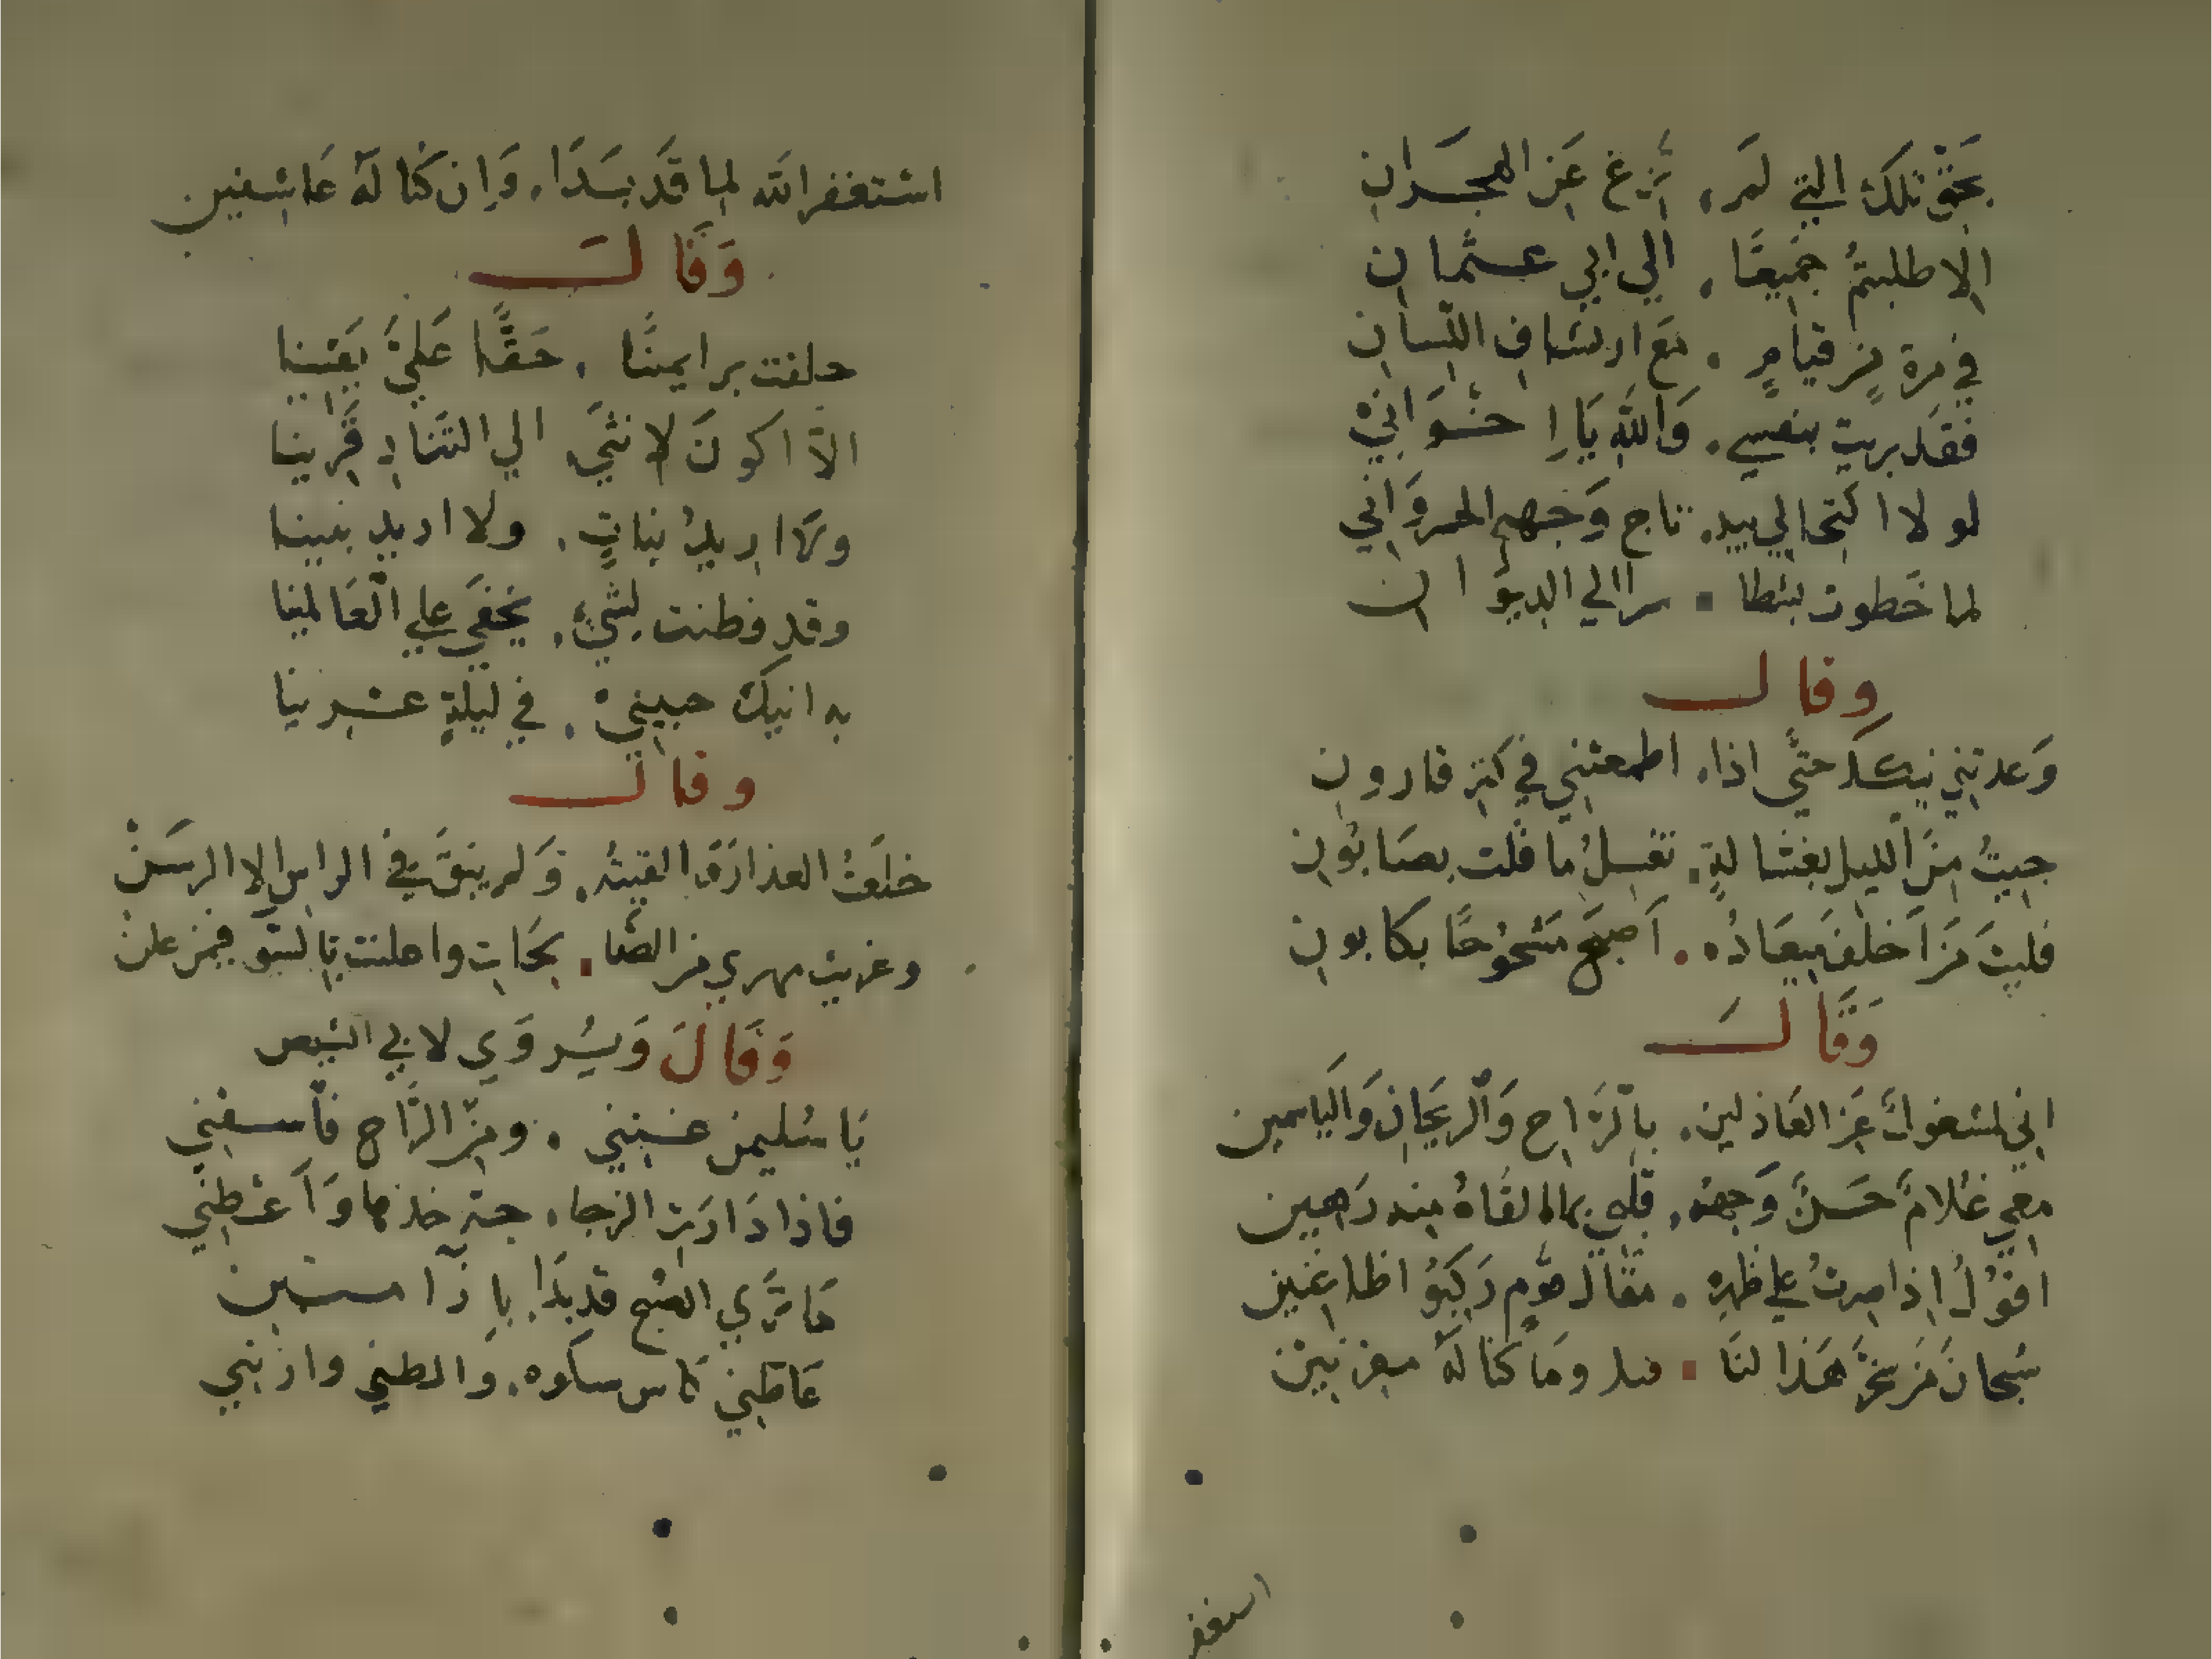 بحَقِّ تلك التي لم، تزغ عَن الهجرانِ
الا طلبتمُ جميعًا، الي ابي عثمان
في مرة من قيامٍ، مع ارتشافِ اللسان
فقد بريت بنفسي، وَاللهِ يَا اخوَانيْ
لو لا اكتحالي بيد، تاج وَجهه المروَاني
لما خَطوت بشطا، سر الي الديوان
وقال
وَعدتني نيكك حتَّي اذا، اطمعتني في كنز قارون
جيتُ منَ الليل بغسَّالةٍ، تغسلُ ما قلت بصَابُون
فليتَ مَن اَخلف ميعَادُه، اَصبَح مَسْحُوجًا بكابون
وَقَالَ
اني لمشغولٌ عَن العَاذلين، بالرَّاح وَالريحَانِ وَاليَاسمين
معي غلامٌ حَسَنٌ وَجهه، قلبي بما القَاهُ منه رَهين
اقوْلُ اذا صرتُ علي ظهره، مقالَ قومٍ رَكبُو اظاعنين
سُبحانَ مَن سخرَ هَذا لنَا، وما كنا لهُ مقرنيْن
استغفر
استغفر الله لما قَد بَدَا، وَان كُنا لهُ عَاشقين
وَقَالَ
حلفت بر ايمنًا، حَقًّا عَليَّ يَقينا
الا اكونَ لانثي، الي التنَادِ قَرينا
ولا اريدُ بناتٍ، ولا اريد بنينا
وقد فطنت لشيْ، يخفَي علي العَالمينا
به انيك حبيبيْ، في ليلةٍ عشرينا
وقال
خلَعتُ العذارَ، وَلم يبقَ في الراس الا الرسَنْ
وعريت مهري من الصبا، واعلنت فيمن علن
وَقَالَ وَيُروَي لابي الشيص
يَا سُليمن غنني، ومنَ الرَّاح فَاسقني
فاذا دَارَت الزجا، جة خذها وَاَعطنْي
مَا تَرَي الصُبح قد بدَا، باِزارٍ مبين
عَاطني كاس سلوه، والطني وازنني